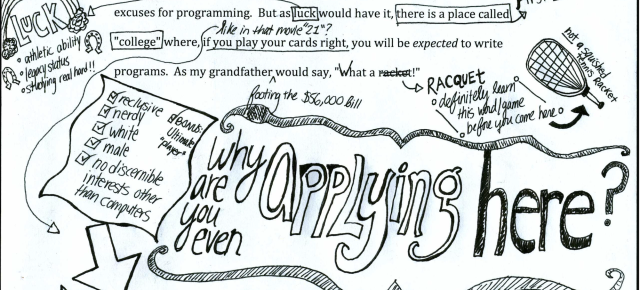 LUCK!
• athletic ability
• legacy status
• studying real hard!!
excuses for programming. But as luck would have it, there is a place called
like in that movie "21"?
"college" where, if you play your cards right, you will be expected to write
programs. As my grandfather would say, "What a racket!"
footing the $56,000 bill
RACQUET
• definitely learn
this word/game
before you come here
not a squished
tennis racket
reclusive
nerdy
white
male
no discernible
interests other
than computers
Ultimate
"player"
why
are
you
even
applying
here?